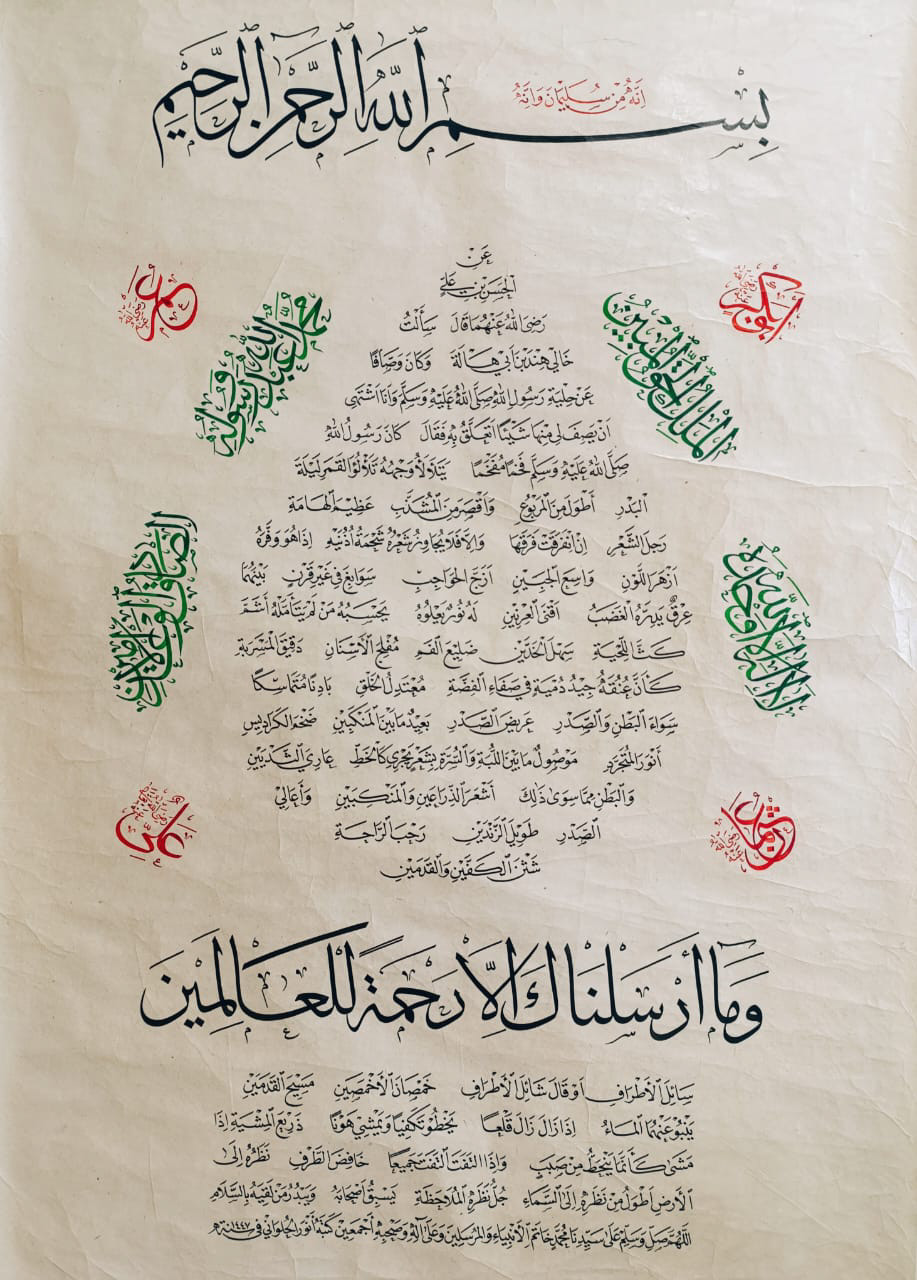 إنه من سليمان وإنه
بسم الله الرحمن الرحيم
عن
الحسن بن علي
رضي الله عنهما قال سألت
خالي هند بن أبي هالة وكان وصافا
عن حلية رسول الله صلى الله عليه وسلم وأنا أشتهي
أن يصف لي منها شيئا أتعلق به فقال كان رسول الله
صلى الله عليه وسلم فخما مفخما يتلألأ وجهه تلألؤ القمر ليلة
البدر أطول من المربوع وأقصر من المشذب عظيم الهامة
رجل الشعر إن انفرقت فرقها وإلا فلا يجاوز شعره شحمة أذنيه إذا هو وفره
أزهر اللون واسع الجبين أزج الحواجب سوابغ في غير قرن بينهما
عرق يدره الغضب أقنى العرنين له نور يعلوه يحسبه من لم يتأمله أشم
كث اللحية سهل الخدين ضليع الفم مفلج الأسنان دقيق المسربة
كأن عنقه جيد دمية في صفاء الفضة معتدل الخلق بادنا متماسكا
سواء البطن والصدر عريض الصدر بعيد ما بين المنكبين ضخم الكراديس
أنور المتجرد موصول ما بين اللبة والسرة بشعر يجري كالخط عاري الثديين
والبطن مما سوى ذلك أشعر الذراعين والمنكبين وأعالي
الصدر طويل الزندين رحب الراحة
شثن الكفين والقدمين
أبوبكر
عمر رضي الله عنه
الملك الحق المبين
محمد عبد الله ورسوله
لا إله إلا الله وحده
الصادق الوعد الأمين
عثمان رضي الله عنه
علي
وما أرسلناك إلا رحمة للعالمين
سائل الأطراف أو قال شائل الأطراف خمصان الأخمصين مسيح القدمين
ينبو عنهما الماء إذا زال زال قلعا يخطو تكفيا ويمشي هونا ذريع المشية إذا
مشى كأنما ينحط من صبب وإذا التفت التفت جميعا خافض الطرف نظره إلى
الأرض أطول من نظره إلى السماء جل نظره الملاحظة يسبق أصحابه ويبدر من لقيه بالسلام
اللهم صل وسلم على سيدنا محمد خاتم الأنبياء والمرسلين وعلى آله وصحبه أجمعين كتبه أنور الحلواني في سنة ١٤٤٧هـ